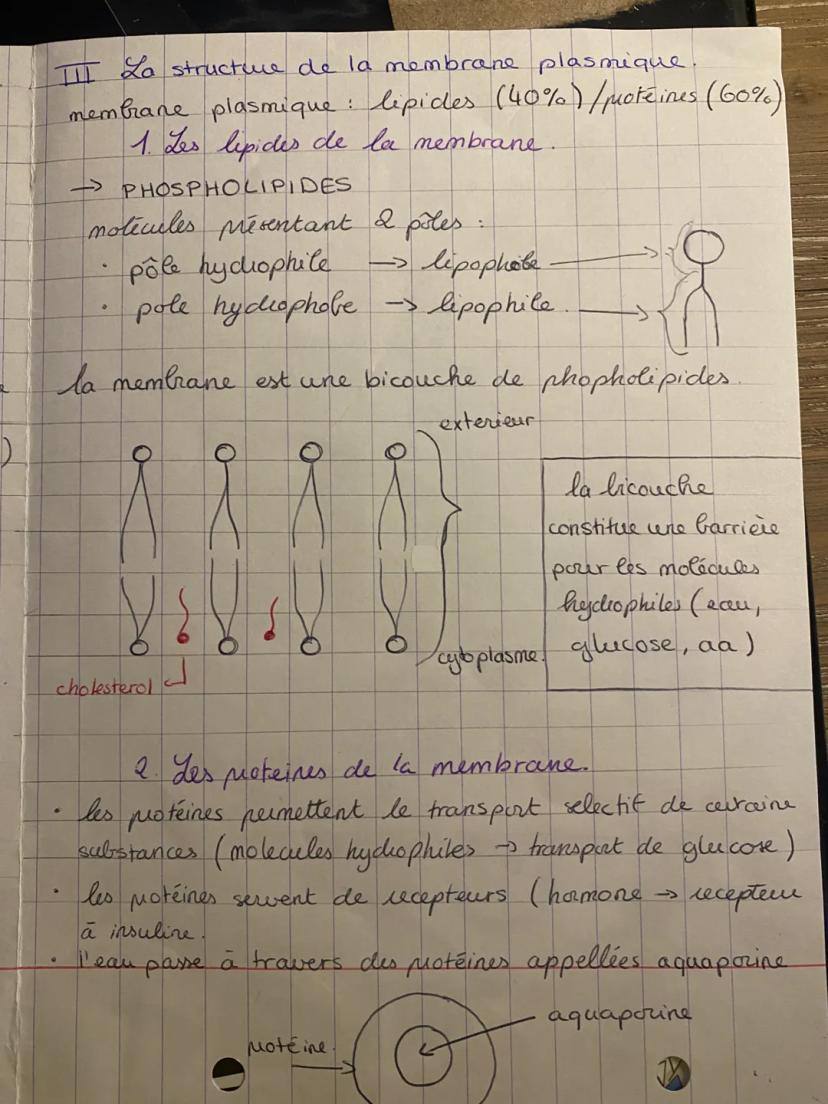 III La structure de la membrane plasmique.
membrane plasmique : lipides (40%)/protéines (60%)
1. Les lipides de la membrane.
→ PHOSPHOLIPIDES
molécules présentant 2 pôles :
· pôle hydrophile → lipophobe
· pole hydrophobe → lipophile.
la membrane est une bicouche de phopholipides.
exterieur
la bicouche
constitue une barrière
pour les molécules
hydrophiles (eau,
glucose, aa)
cytoplasme.
cholesterol
2. Les proteines de la membrane.
· les protéines permettent le transport selectif de certaine
substances (molecules hydrophiles → transport de glucose)
· les protéines servent de recepteurs (hormone → recepteur
à insuline.
· l'eau passe à travers des protéines appellées aquaporine
aquaporine
protéine.